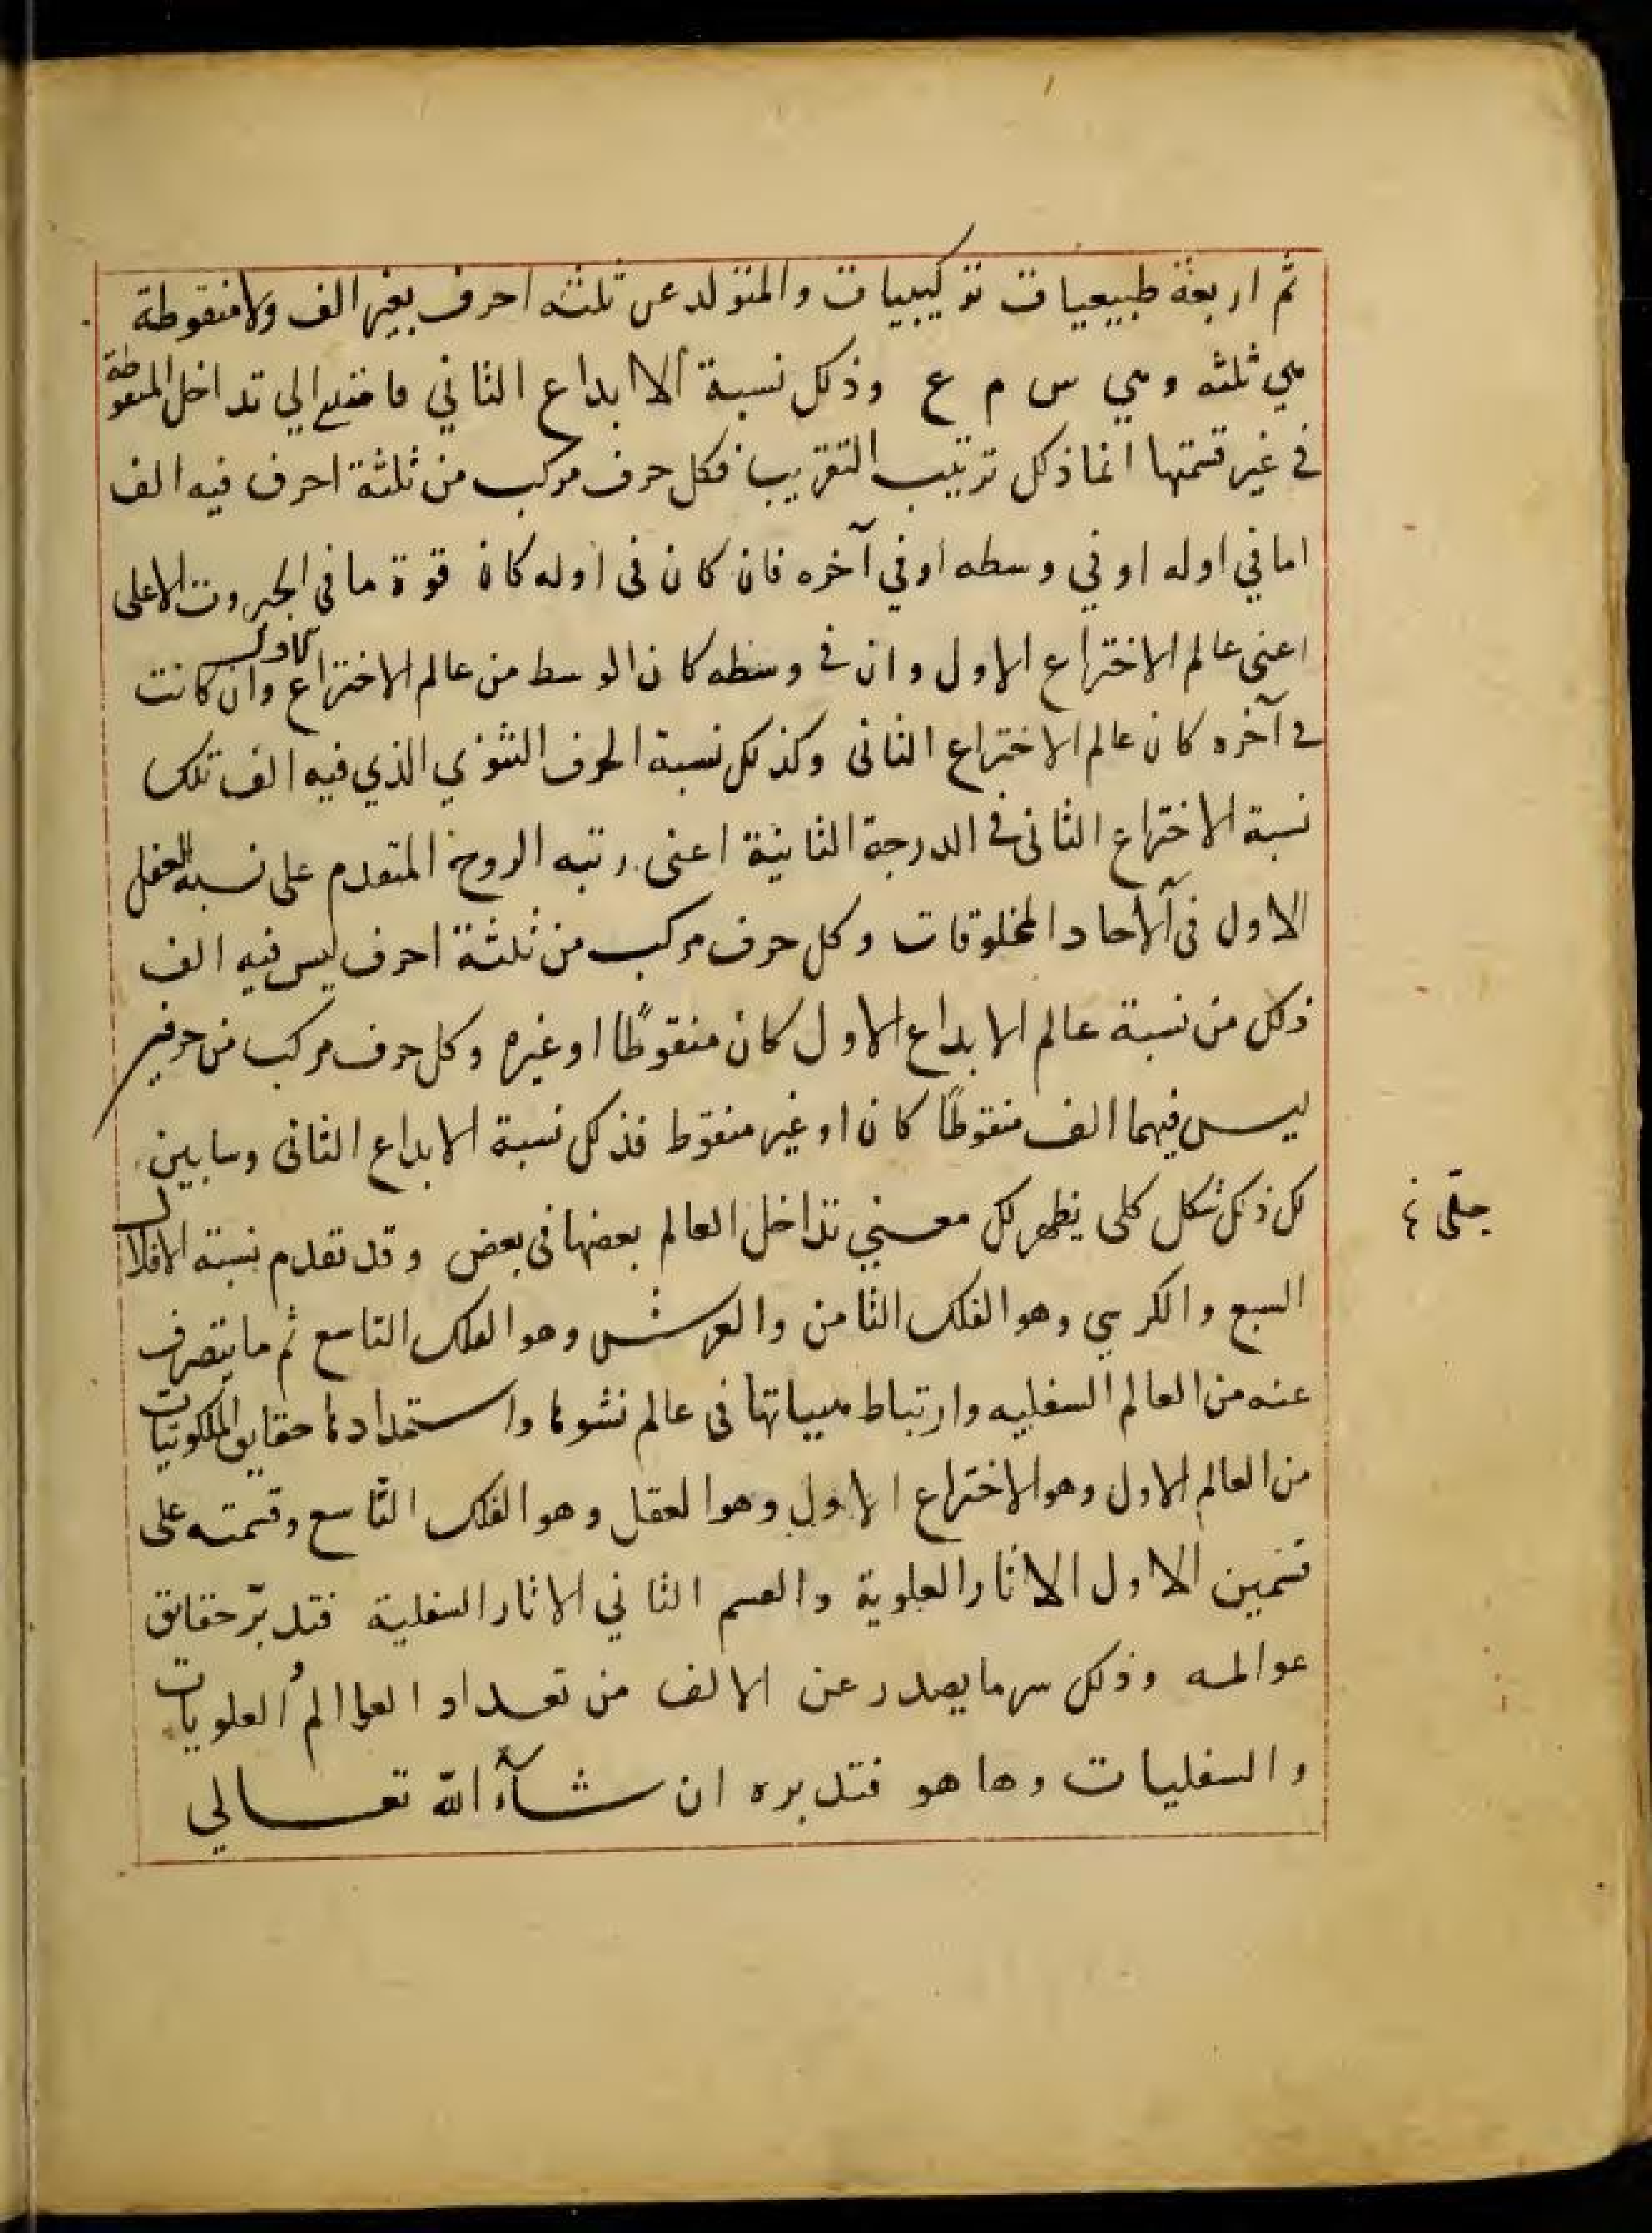 ثم اربعة طبيعيات تركيبيات والمتولد عن ثلثه احرف بغير الف ولا منقوطة
هي ثلثه وهي س م ع وذلك نسبة الابداع الثاني الي تداخل المنقوطة
في غير قسمتها انما ذلك ترتيب التقريب فكل حرف مركب من ثلثة احرف فيه الف
اما في اوله او في وسطه او في آخره فان كان في اوله كان قوة ما في الجبروت الاعلى
اعنى عالم الاختراع الاول وان في وسطه كان الوسط من عالم الاختراع الاول وان كانت
في آخره كان عالم الاختراع الثانى وكذلك نسبة الحرف الذي فيه الف تلك
نسبة الاختراع الثانى في الدرجة الثانية اعنى رتبه الروح المتقدم على نسبة العقل
الاول فى آلآحاد المخلوقات وكل حرف مركب من ثلثة احرف ليس فيه الف
ذلك من نسبة عالم الابداع الاول كان منقوطًا او غيره وكل حرف مركب من حرفين
ليس فيهما الف منقوطًا كان او غير منقوط فذلك نسبة الابداع الثانى وسابين
لك ذلك شكل كلى يظهر لك معني تداخل العالم بعضها فى بعض وقد تقدم نسبته الافلاك
جلى
السبع والكرسي وهو الفلك الثامن والعرش وهو الفلك التاسع ثم ما يتصرف
عنه من العالم السفليه وارتباط فى عالم نشوها واستمدادها حقايق الملكوتيات
من العالم الاول وهو الاختراع الاول وهو العقل وهو الفلك التاسع وقسمته على
قسمين الاول الاثار العلوية والقسم الثاني الاثار السفلية فتدبّر حقائق
عوالمه وذلك سر ما يصدر عن الالف من تعداد العوالم العلويات
والسفليات وها هو فتدبره ان شآء الله تعالي